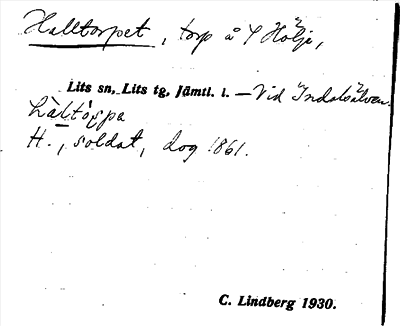 Halltorpet, torp å S Hölje,
Lits sn, Lits tg, Jämtl. l. — Vid Indalsälven.
H., soldat, dog 1861.
C. Lindberg 1930.